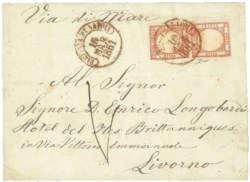 Via di Mare
Al Signor
Signore D. Enrico Longobardi
Hotel des Iles Brittanniques
in Via Vittorio Emmanuele
Livorno